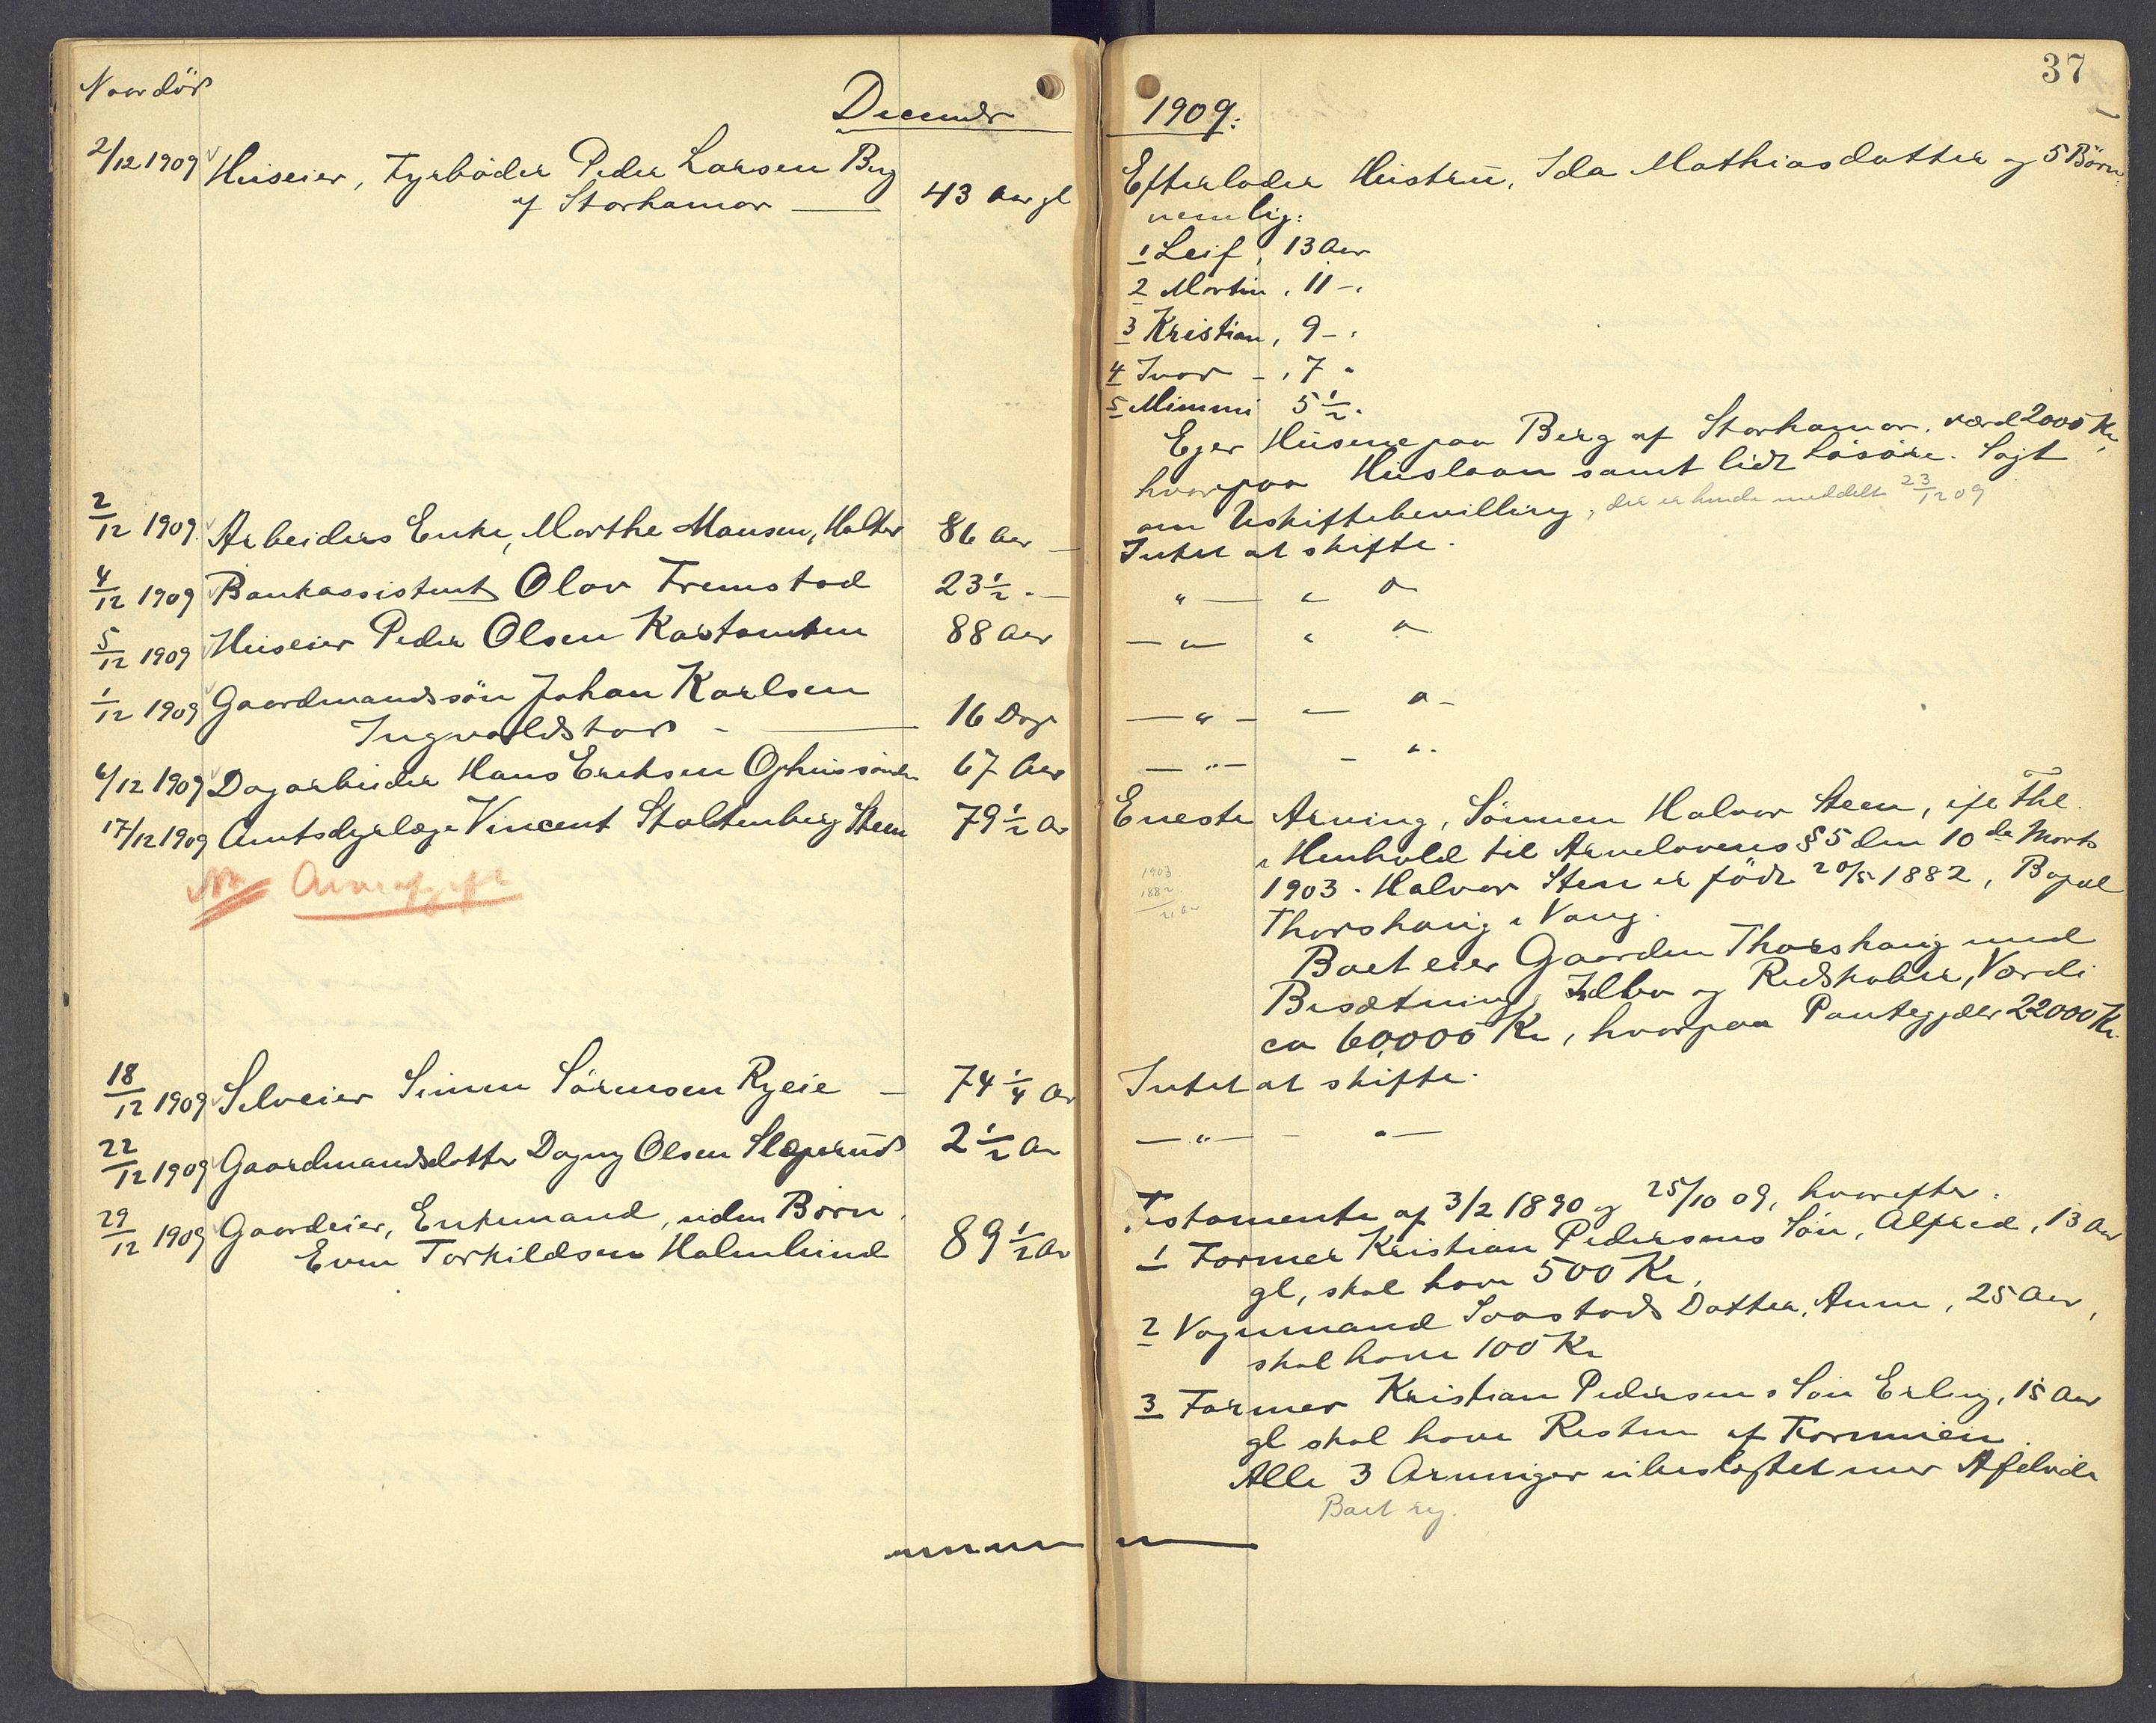 37
Naar død
December 1909:
2/12 1909 Huseier, Fyrbøder Peder Larsen Berg
af Storhamar — 43 Aar gl
Efterlader Hustru, Ida Mathiasdatter og 5 Børn:
nemlig:
1 Leif, 13 Aar
2 Martin, 11 – "
3 Kristian, 9 – "
4 Ivar – , 7 "
5 Mimmi 5 1/2 "
Ejer Husene paa Berg af Storhamar, værd 2000 Kr,
hvorpaa Huslaan samt lidt Løsøre. Søgt
om Uskiftebevilling, der er hende meddelt 23/12 09
2/12 1909 Arbeiders Enke, Marthe Hansen, 86 Aar — Intet at skifte.
4/12 1909 Bankassistent Olav Fremstad 23 1/2 " — " — " "
5/12 1909 Huseier Peder Olsen Kastamten 88 Aar — " — " "
1/12 1909 Gaardmandssøn Johan Karlsen
Ingvaldstad — 16 Dage — " — — " –
6/12 1909 Dagarbeider Hans Eriksen Ophussanden 67 Aar — " — – "
17/12 1909 Amtsdyrlæge Vincent Stoltenberg Steen 79 1/2 Aar
NB Arveafgift
Eneste Arving, Sønnen Halvor Steen, ifr Thl.
i Henhold til Arvelovens § 5 den 10de Marts
1903. Halvor Steen er født 20/5 1882, Bopæl
Thorshaug i Vang.
1903
1882
21 Aar
Boet eier Gaarden Thorshaug med
Besætning, Indbo og Redskaber, Værdi
ca 60,000 Kr, hvorpaa Pantegjæld 22000 Kr.
18/12 1909 Selveier Simen Sørensen Ryeie — 74 1/4 Aar Intet at skifte.
22/12 1909 Gaardmandsdatter Dagny Olsen Slæperud 2 1/2 Aar — " — – " —
29/12 1909 Gaardeier, Enkemand, uden Børn,
Even Torkildsen Holmlund 89 1/2 Aar
Testamente af 3/2 1890 og 25/10 09, hvorefter:
1 Former Kristian Pedersens Søn, Alfred, 13 Aar
gl, skal have 500 Kr,
2 Vognmand Saastads Datter, Anne, 25 Aar,
skal have 100 Kr
3 Former Kristian Pedersens Søn Erling, 15 Aar
gl skal have Resten af Formuen.
Alle 3 Arvinger ubeslægtet med Afdøde
Boet reg.